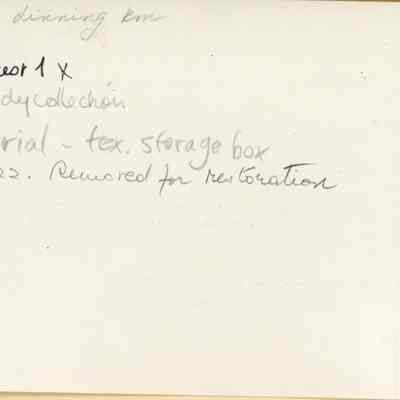 dinning Rm
est 1 X
dy collection
rial - tex. storage box
22. Removed for restoration